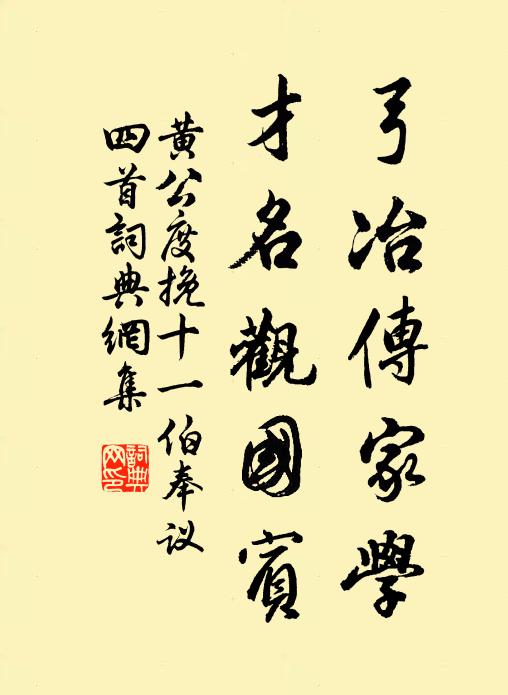 弓冶傳家學
才名觀國賓
黄公度挽十一伯奉议
四首詞典網集
詞典
网印